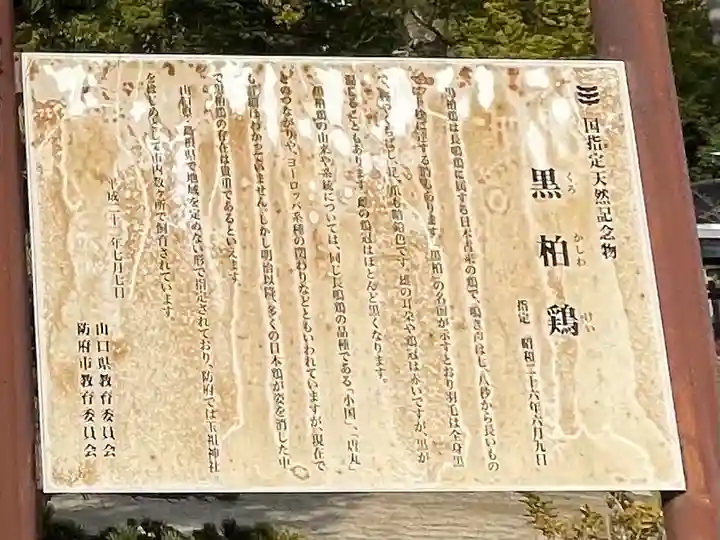 国指定天然記念物
黒柏鶏
くろ かしわ けい
指定 昭和二十六年六月九日
黒柏鶏は長鳴鶏に属する日本古来の鶏で、鳴き声は七、八秒から長いもの
では十秒に達する鶏もあります。「黒柏」の名前が示すとおり羽毛は全身黒
で、脚、くちばし、足、爪も暗鉛色です。雄の耳朶や鶏冠は赤いですが、黒が
混じることもあります。雌の鶏冠はほとんど黒くなります。
黒柏鶏の由来や系統については、同じ長鳴鶏の品種である「小国」、「唐丸」
とのつながりや、ヨーロッパ系種の関わりなどともいわれていますが、現在で
も詳細はわかっていません。しかし明治以降、多くの日本鶏が姿を消した中
で黒柏鶏の存在は貴重であるといえます。
山口県・島根県で地域を定めない形で指定されており、防府では玉祖神社
をはじめとして市内数ヶ所で飼育されています。
平成二十一年七月七日
山口県教育委員会
防府市教育委員会